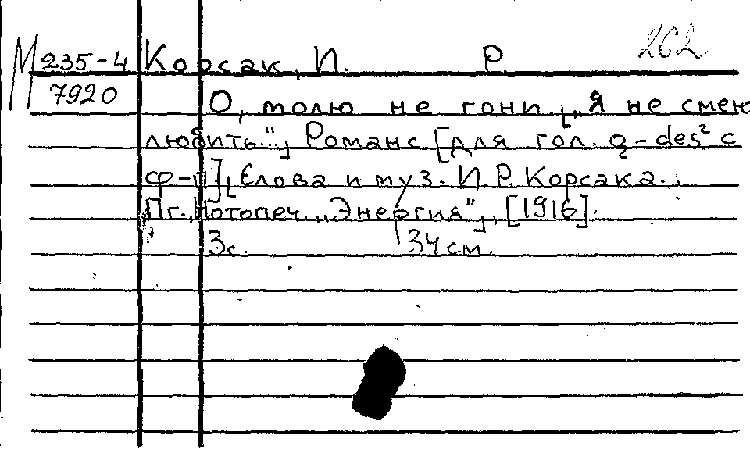 М 235-4 Корсак, И. Р 202
7920 О, молю не гони „Я не смею
любить", Романс [для гол. g-des² с
ф-п], Слова и муз. И. Р. Корсака.
Пг., Нотопеч. „Энергия", [1916].
3с. 34 см.